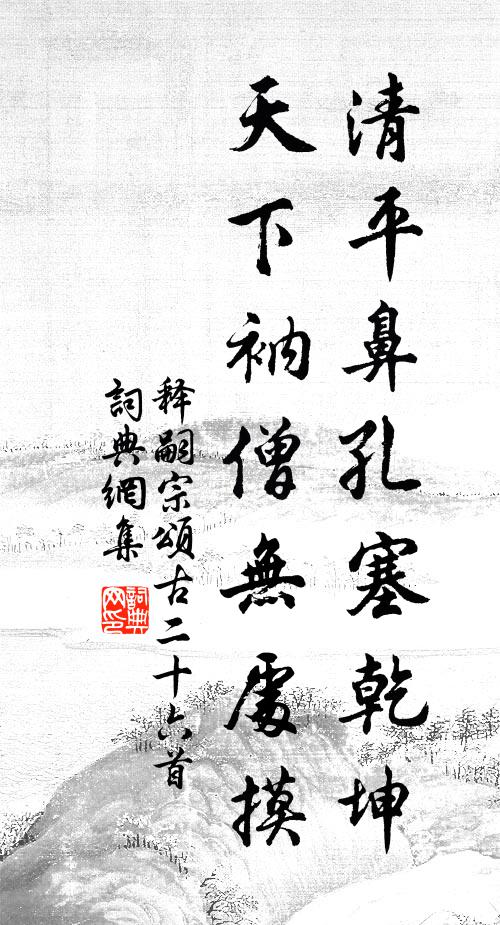 清平鼻孔塞乾坤
天下衲僧無處摸
释嗣宗頌古二十六首
詞典網集
詞典网印